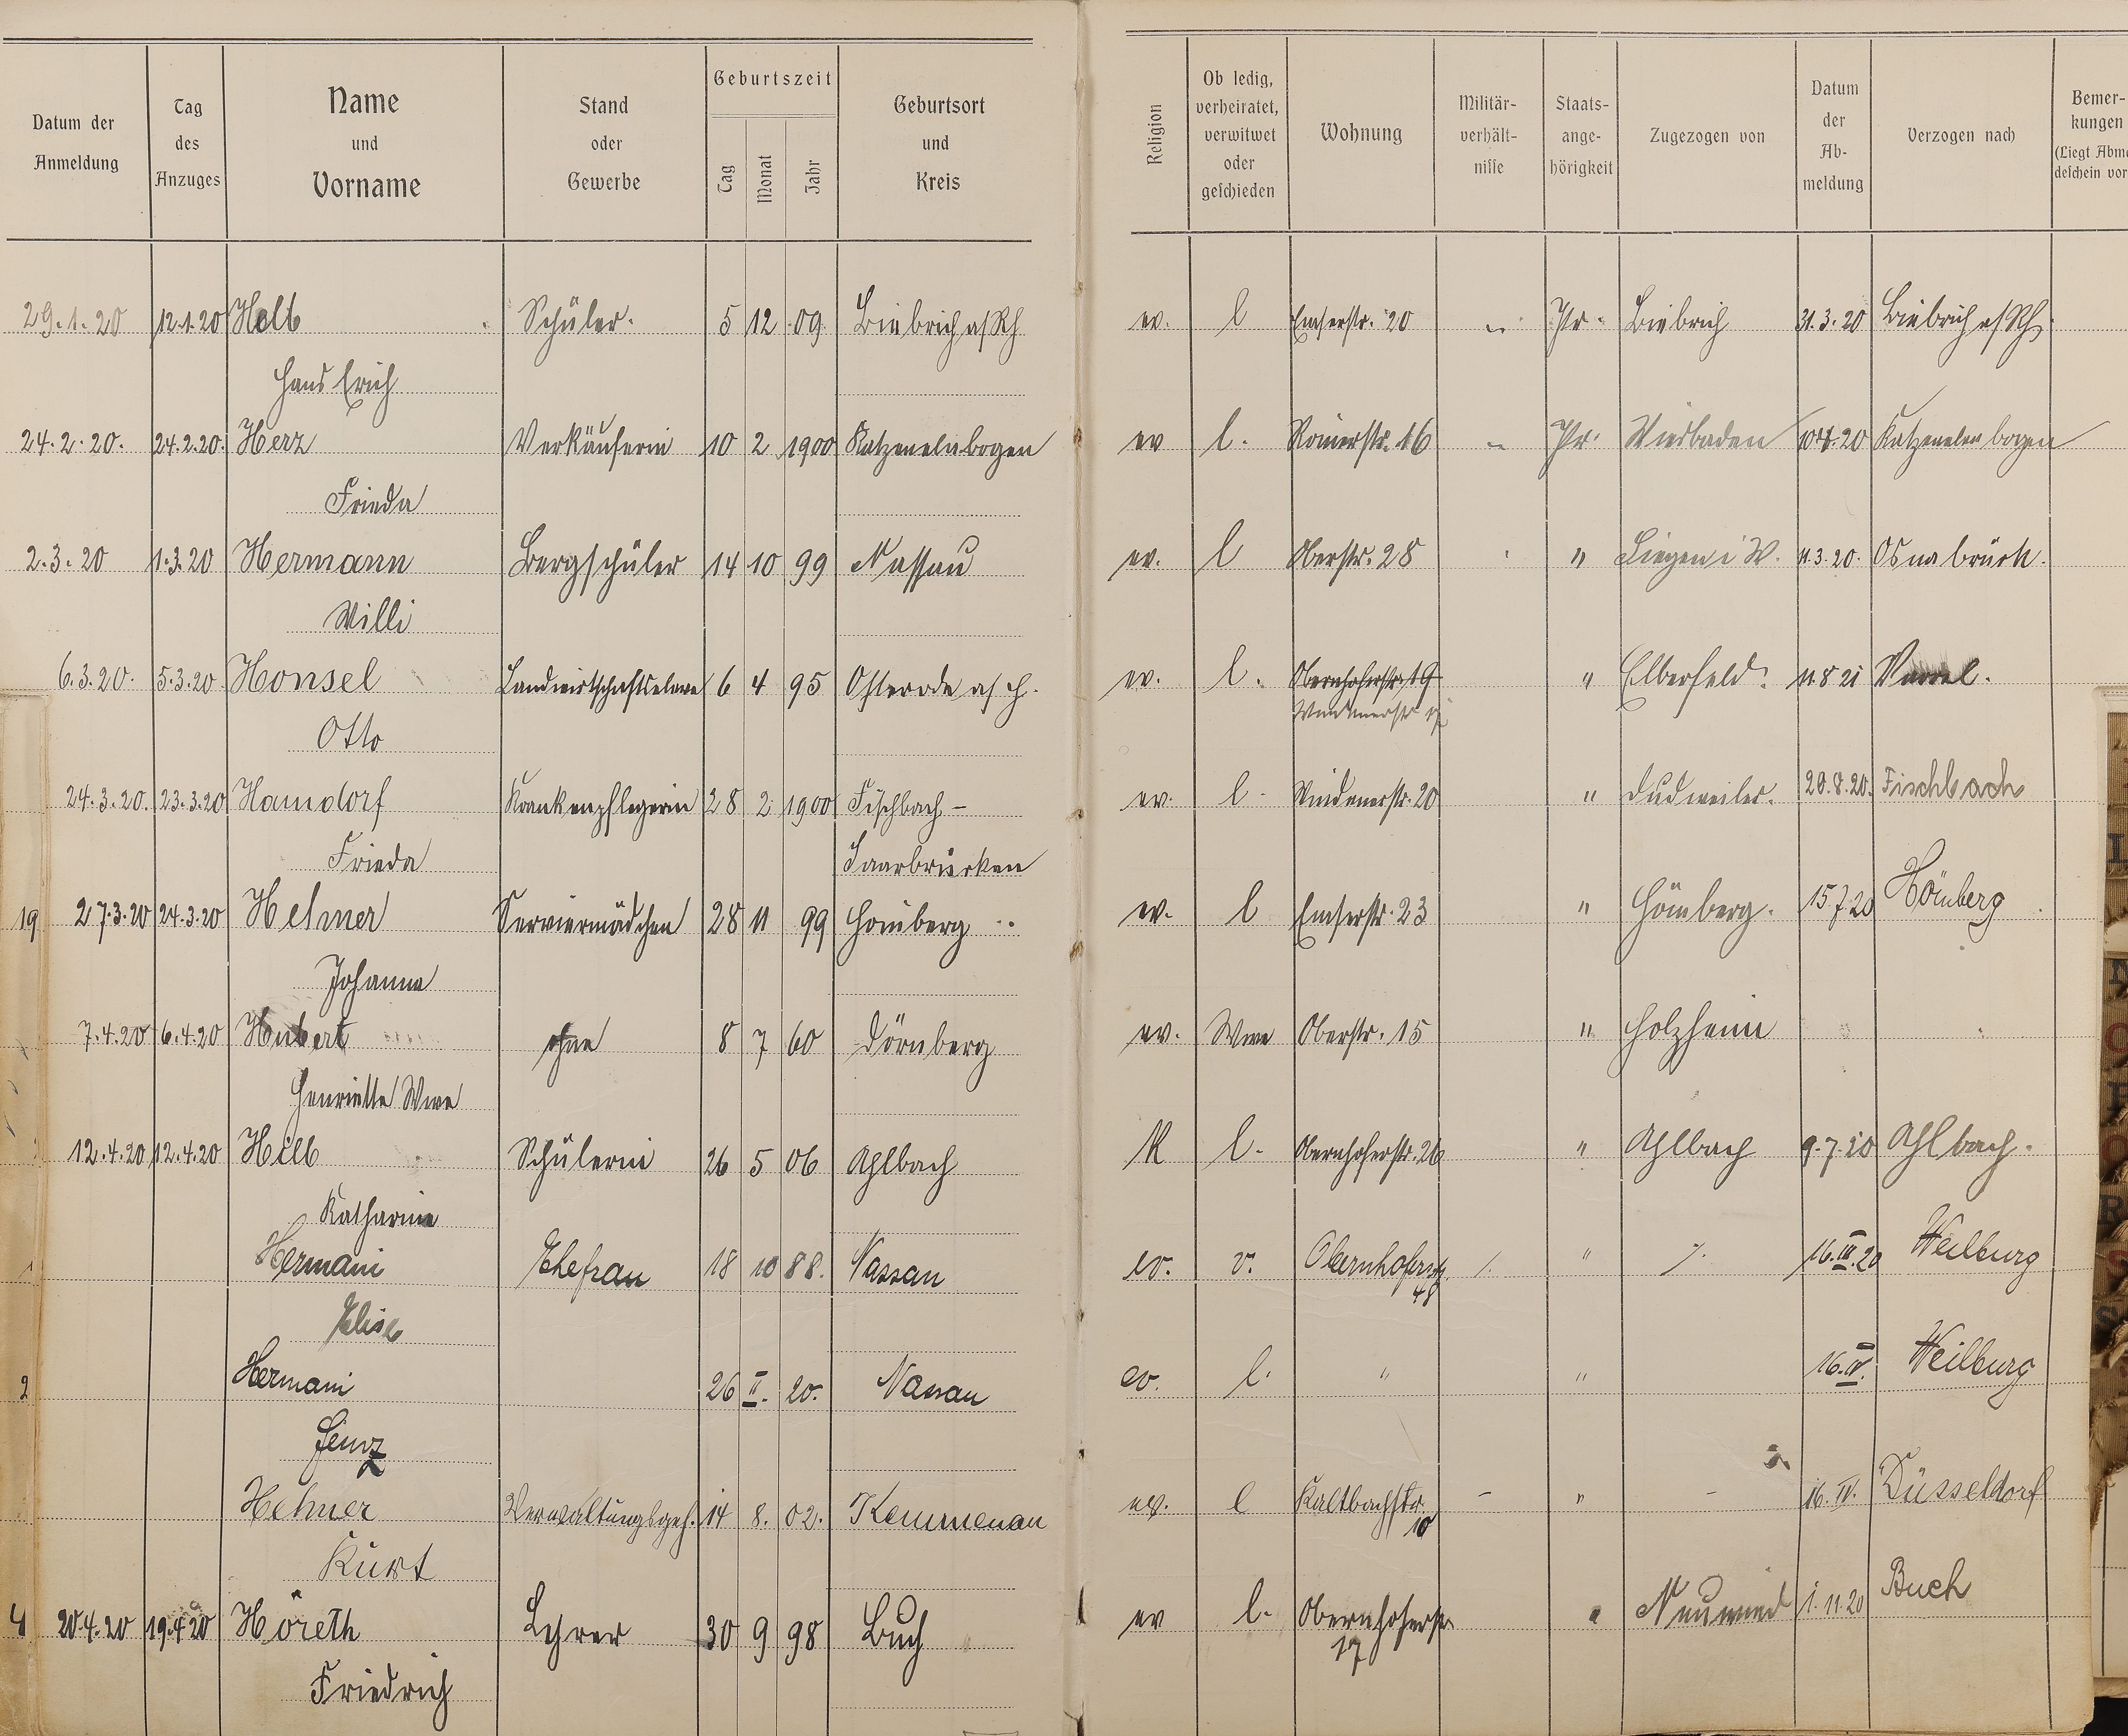 Datum der Anmeldung | Tag des Anzuges | Name und Vorname | Stand oder Gewerbe | Geburtszeit Tag Monat Jahr | Geburtsort und Kreis | Religion | Ob ledig, verheiratet, verwitwet oder geschieden | Wohnung | Militär-verhält-nisse | Staats-ange-hörigkeit | Zugezogen von | Datum der Ab-meldung | Verzogen nach | Bemer-kungen (Liegt Abm
29.1.20 12.1.20 Holb Schüler 5 12 09 Biebrich a/Rh ev. l Emserstr. 20 Pr. Biebrich 31.3.20 Biebrich a/Rh.
Hans Erich
24.2.20. 24.2.20. Herz Verkäuferin 10 2 1900 Katzenelnbogen ev l. Römerstr. 16 Pr. Wiesbaden 20 Katzenelnbogen
Frieda
2.3.20 1.3.20 Hermann Bergschüler 14 10 99 Nassau ev. l Oberstr. 28 " Siegen i W. 11.3.20. Osnabrück.
Willi
6.3.20. 5.3.20. Honsel Landwirtschaftseleve 6 4 95 Osterode a/H. ev. l. Obernhoferstr. 19 " Elberfeld. 11.8 21 Varrel.
Otto
24.3.20. 23.3.20 Hamdorf Krankenpflegerin 28 2 1900 Fischbach - ev. l. Windenerstr. 20 " Dudweiler. 20.8.20. Fischbach
Frieda Saarbrücken
19 27.3.20 24.3.20 Helmer Serviermädchen 28 11 99 Hömberg ev. l Emserstr. 23 " Hömberg. 15.7.20 Hömberg
Johanna
7.4.20 6.4.20 Hubert ohne 8 7 60 Dörnberg ev. Wwe Oberstr. 15 " Holzheim
Henriette Wwe
12.4.20 12.4.20 Hilb Schülerin 26 5 06 Ahlbach K l. Obernhoferstr. 26 " Ahlbach 9.7.20 Ahlbach.
Katharina
Hermani Ehefrau 18 10 88. Nassau ev. v. Obernhoferstr. " 16.III.20 Weilburg
48
Elise
2 Hermani 26 II. 20. Nassau ev. l. " " 16.IV. Weilburg
Heinz
Hehner Verwaltungsgeh. 14 8. 02. Kemmenau ev. l Kaltbachstr. - " - 16.IV. Düsseldorf
10
Kurt
4 20.4.20 19.4.20 Höreth Lehrer 30 9 98 Buch ev l. Obernhoferstr. " Neuwied 1.11.20 Buch
17
Friedrich